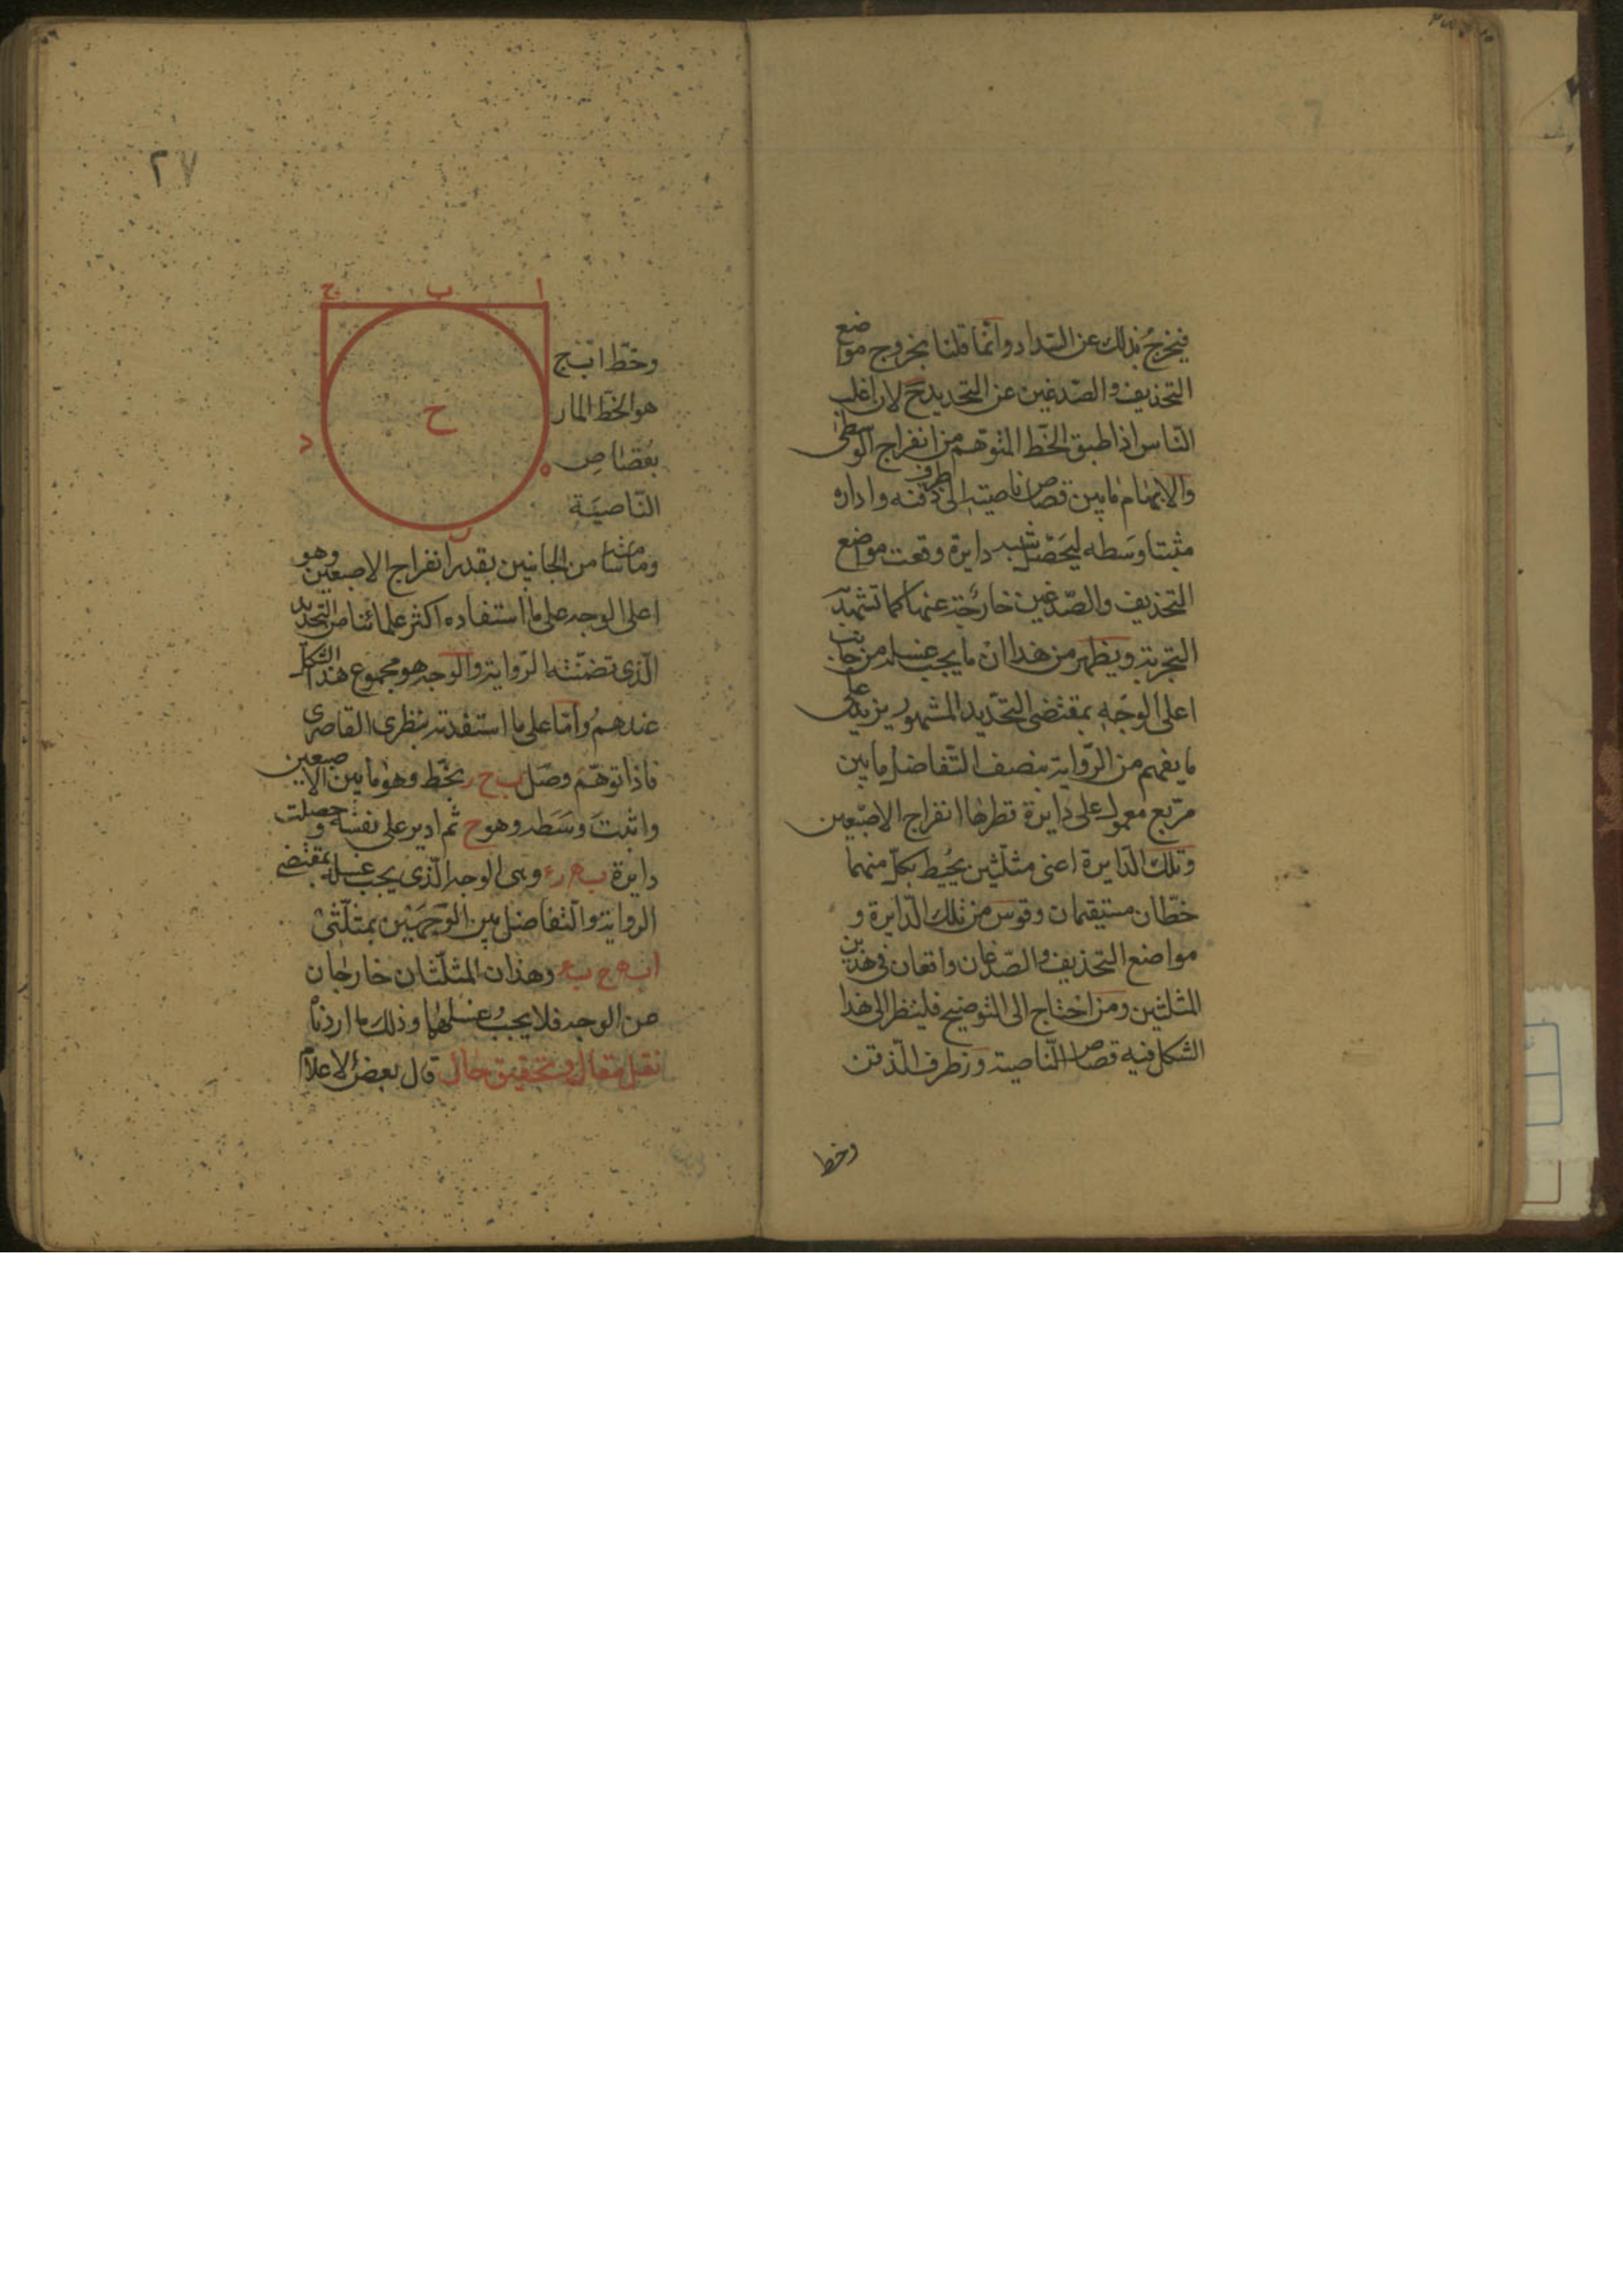 فيخرج بذلك عن السداد وانّما قلنا بخروج مواضع
التحذيف والصّدغين عن التحديد ح لان اغلب
النّاس اذا طبق الخّط المتوّهم من انفراج الوسطى
والابهام ما بين قصاص ناصيته الى طرف ذقنه واداره
مثبتا وسَطه ليَحصّل شبه دايرة وقعت مواضع
التحذيف والصّدغين خارجة عنها كما تشهد به
التجربة ويظهر من هذا انّ ما يجب غسله من جانب
اعلى الوجه بمقتضى التحّديد المشهور يزيد على
ما يفهم من الرّواية بنصف التّفاضل ما بين
مربّع معمول على دايرة قطرها انفراج الاصبّعين
وتلك الدّايرة اعنى مثلّثين يحُيط بكلّ منهما
خطّان مستقيمان وقوس من تلك الدّايرة و
مواضع التحذيف والصّدغان واقعان فى هذين
المثلثين ومن احتاج الى التوضيح فلينظر الى هذا
الشكل فيه قصاص النّاصية و ر طرف الذقن
وخط
٢٧
ا ب ج
ح
د
ه
ر
وخّط ا ب ج
هو الخّط المار
بقصاص
النّاصيَة
وماسّا من الجانبين بقدر انفراج الاصبعين وهو
اعلى الوجه على ما استفاده اكثر علمائنا من التحّديد
الّذى تضمنّته الرّواية والوجه هو مجموع هذا الشكل
عندهم وامّا على ما استفدته بنظرى القاصر
فاذا توهّم وصَل ب ح ر بخّط وهو ما بين الاصبعين
واثبتَ وسَطه وهو ح ثم ادير على نفسه وحصلت
دايرة ب ه ر د وهى الوجه الّذى يجب غسله بمقتضى
الرواية والتفاضل بين الوَجهَين بمثلّثى
ا ب ه ج ب د وهذان المثلّثان خارجان
من الوجه فلا يجبُ غسلهما وذلك ما اردنا
نقل مقال وتحقيق حال قال بعض الاعلام